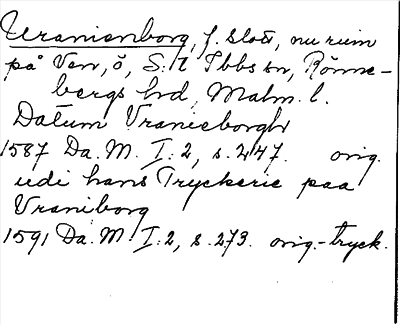 Uranienborg, f. slott, nu ruin
på Ven, ö, S:t Ibbs sn, Rönne-
bergs hrd, Malm. l.
Datum Vranieborgh
1587 Da. M. I:2, s. 247. orig.
udi hans Tryckerie paa
Vraniborg
1591 Da. M I:2, s. 273. orig.-tryck.